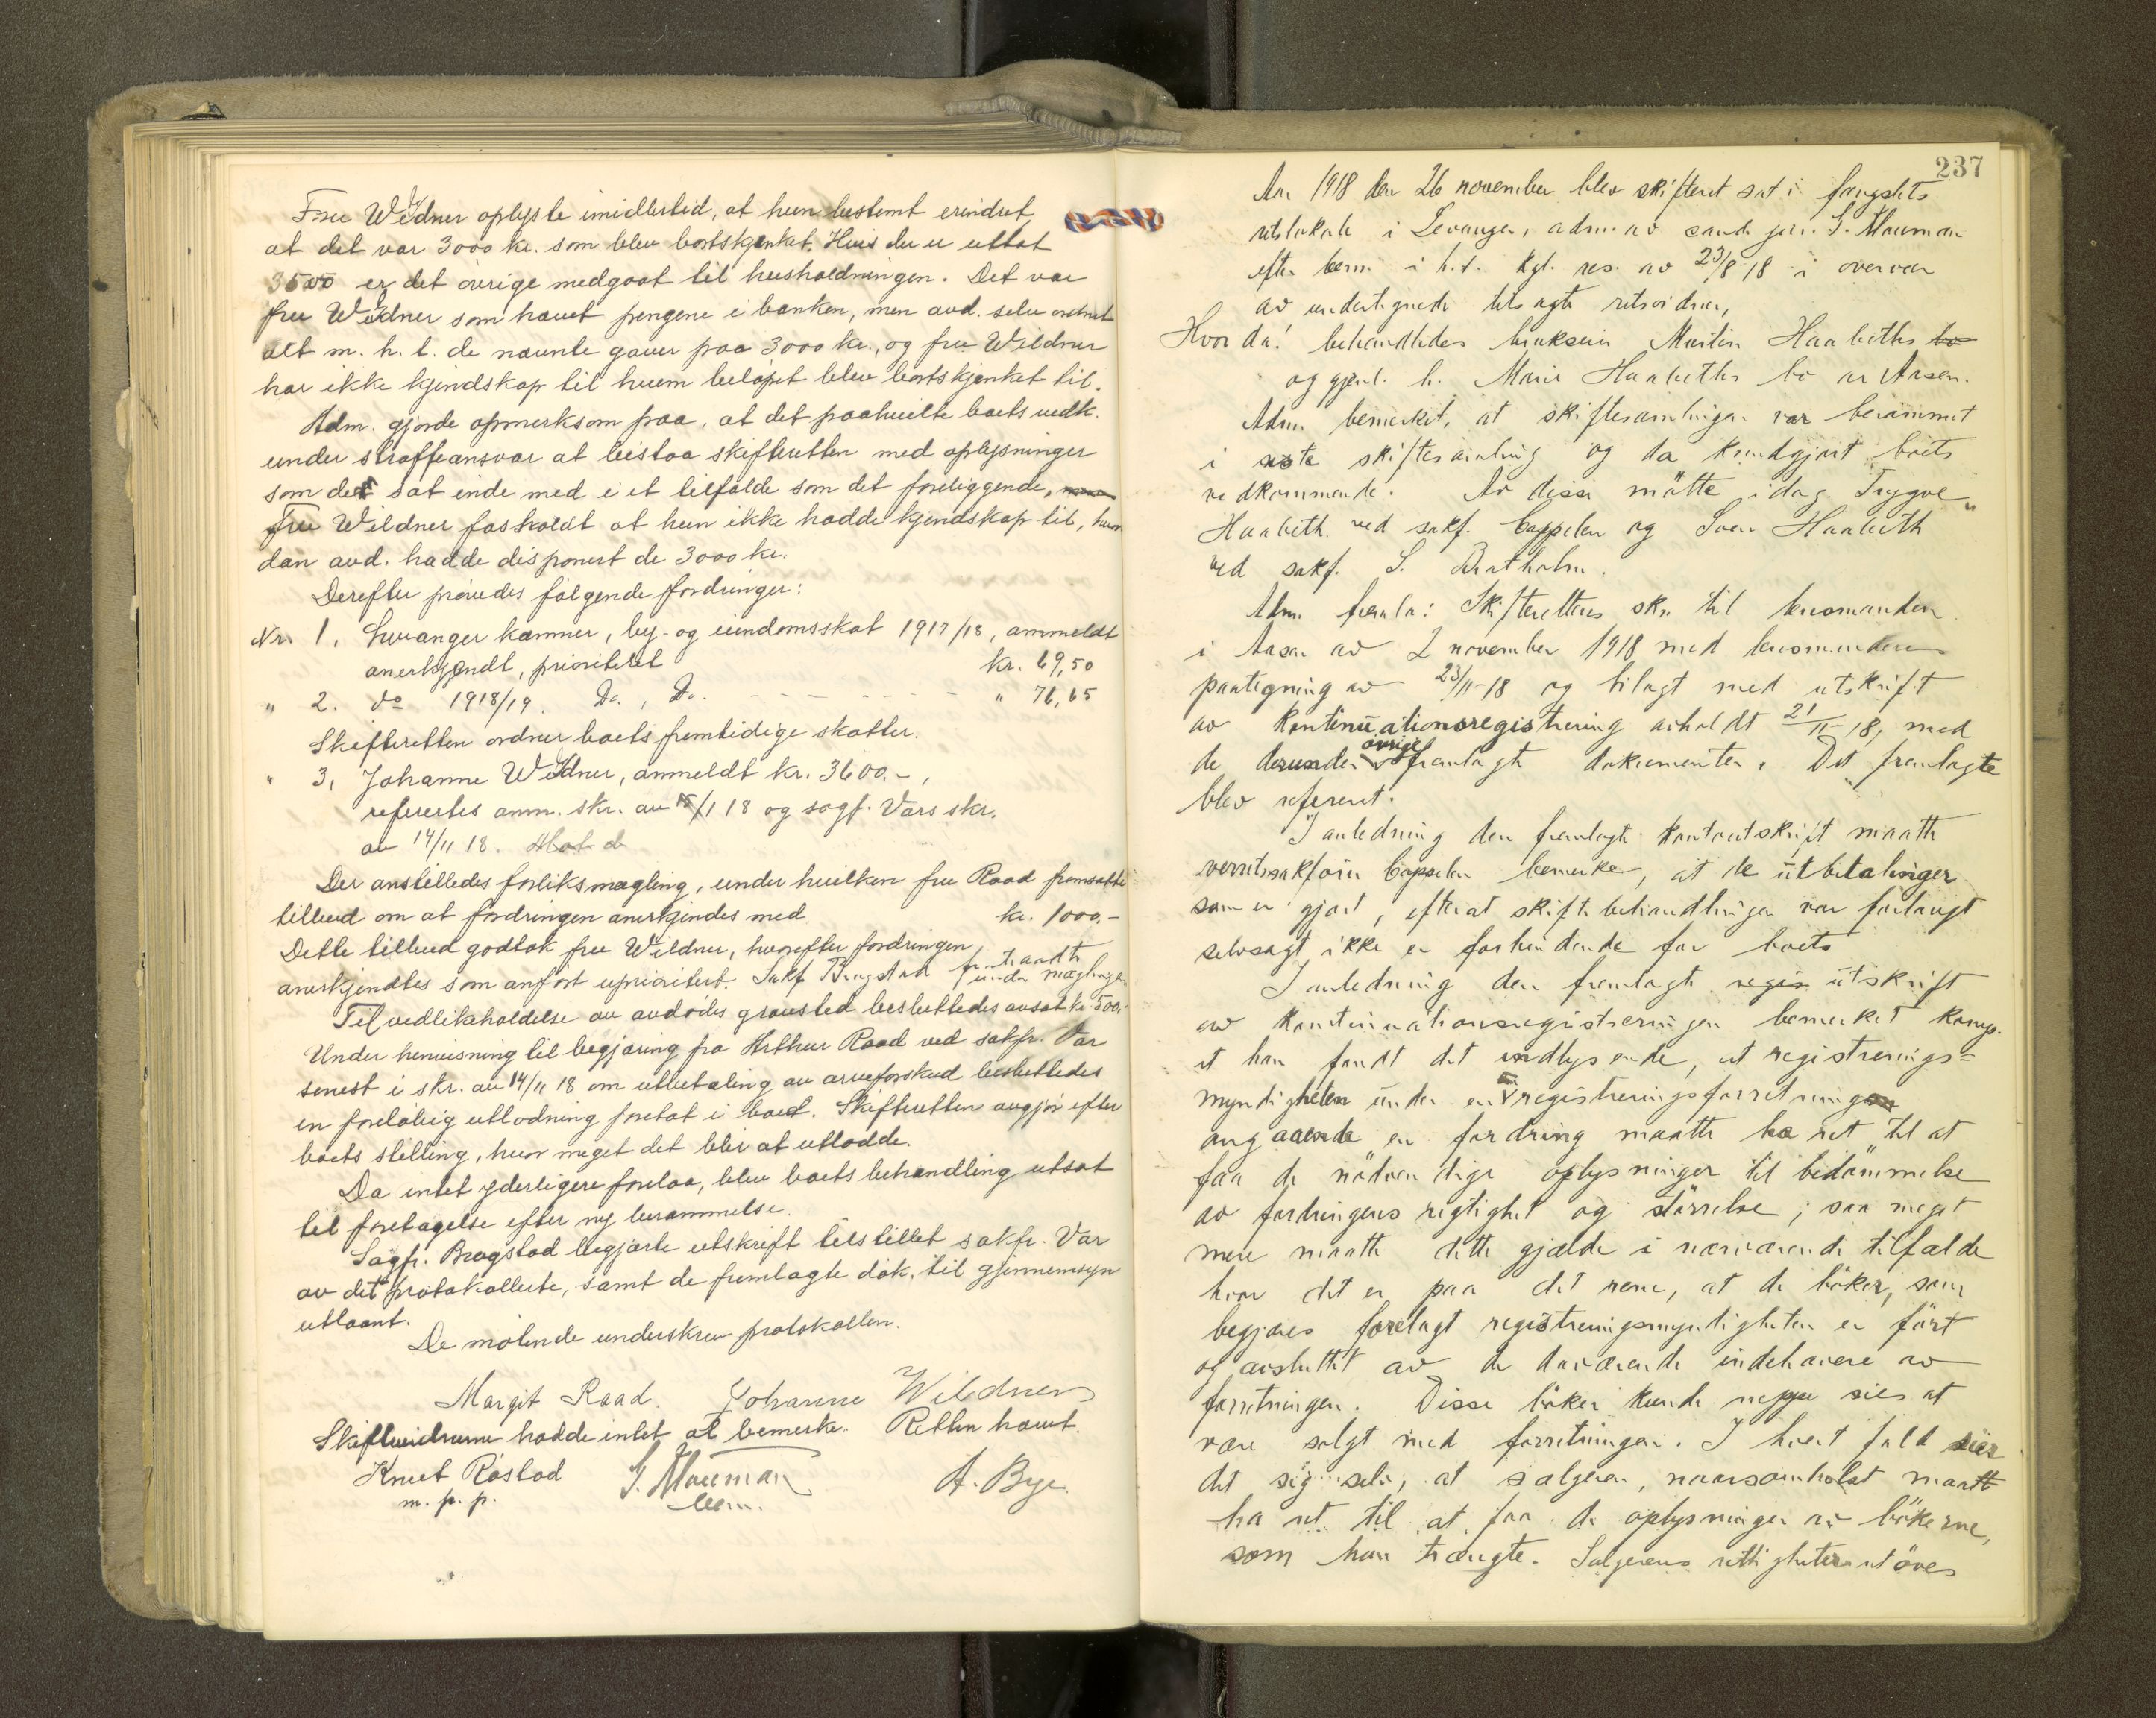 Fru Wildner oplyste imidlertid, at hun bestemt erindret,
at det var 3000 kr. som blev bortskjenket. Hvis der er uttat
3500 er det øvrige medgaat til husholdningen. Det var
fru Wildner som hævet pengene i banken, men avd. selv ordnet
alt m. h. t. de nævnte gaver paa 3000 kr., og fru Wildner
har ikke kjendskap til hvem beløpet blev bortskjenket til.
Adm. gjorde opmerksom paa, at det paahvilte boets vedk.
under straffeansvar at bistaa skifteretten med oplysninger
som de sat inde med i et tilfælde som det foreliggende,
Fru Wildner fastholdt at hun ikke hadde kjendskap til, hvor
dan avd. hadde disponert de 3000 kr.
Derefter prøvedes følgende fordringer:
Nr. 1. Levanger kæmner, by- og eiendomsskat 1917/18, anmeldt
anerkjendt, prioritert kr. 69,50
" 2. do 1918/19. Do., Do. - - - - - " 76,65
Skifteretten ordner boets fremtidige skatter.
" 3. Johanne Wildner, anmeldt kr. 3600.-,
referertes anm. skr. av 15/11 18 og sagf. Vars skr.
av 14/11 18.
Der anstilledes forliksmegling, under hvilken fru Raad fremsatte
tilbud om at fordringen anerkjendes med kr. 1000.-
Dette tilbud godtok fru Wildner, hvorefter fordringen
anerkjendtes som anført uprioritert. Sakf. Bragstad fratraadte
under mæglingen
Til vedlikeholdelse av avdødes gravsted besluttedes avsat kr. 500.-
Under henvisning til begjæring fra Arthur Raad ved sakfr. Var
senest i skr. av 14/11 18 om utbetaling av arveforskud besluttedes
en foreløbig utlodning foretat i boet. Skifteretten avgjør efter
boets stilling, hvor meget det blir at utlodde.
Da intet yderligere forelaa, blev boets behandling utsat
til foretagelse efter ny berammelse.
Sagfr. Bragstad begjærte utskrift tilstillet sakfr. Var
av det protokollerte, samt de fremlagte dok. til gjennemsyn
utlaant.
De møtende underskrev protokollen.
Margit Raad. Johanne Wildner
Skiftevidnerne hadde intet at bemerke. Retten hævet.
Knut Røstad J. Mouman A. Bye.
m. p. p.
237
Aar 1918 den 26 november blev skifteret sat i fængslets
retslokale i Levanger, adm. av cand. jur. J. Mouman
efter bem. i h. t. kgl. res. av 23/8 18 i overvær
av undertegnede tilsagte retsvidner,
Hvor da! behandledes bruksier Martin Haabeths bo
og gjenl. h. Marie Haabeths bo av Aasen.
Adm. bemerket, at skiftesamlingen var berammet
i siste skiftesamling og da kundgjort boets
vedkommende. Av disse møtte idag Trygve
Haabeth ved sakf. Cappelen og Sven Haabeth
ved sakf. S. Bertholm.
Adm. fremla: Skifterettens skr. til lensmanden
i Aasen av 2 november 1918 med lensmandens
paategning av 23/11-18 og bilagt med utskrift
av kontinuationsregistrering avholdt 21/11-18, med
de derunder øvrige fremlagte dokumenter. Det fremlagte
blev referert.
I anledning den fremlagte kontoutskrift maatte
overretssakfører Cappelen bemerke, at de utbetalinger
som er gjort, efterat skiftebehandlingen var forlangt
selvsagt ikke er forbindende for boets
I anledning den fremlagte regis utskrift
av kontinuationsregistreringen bemerket komp.
at han fandt det indlysende, at registrerings=
myndigheten under en registreringsforretning
angaaende en fordring maatte ha ret til at
faa de nødvendige oplysninger til bedømmelse
av fordringens rigtighet og størrelse; saa meget
mere maatte dette gjælde i nærværende tilfælde
hvor det er paa det rene, at de bøker, som
begjæres forelagt registreringsmyndigheten er ført
og avsluttet av de daværende indehavere av
forretningen. Disse bøker kunde neppe sies at
være solgt med forretningen. I hvert fald sier
det sig selv, at sælgeren, naarsomhelst maatte
ha ret til at faa de oplysninger av bøkerne,
som han trængte. Sælgerens rettigheter utøves